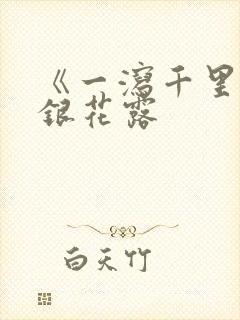 《一瀉千里
銀花露
白天竹